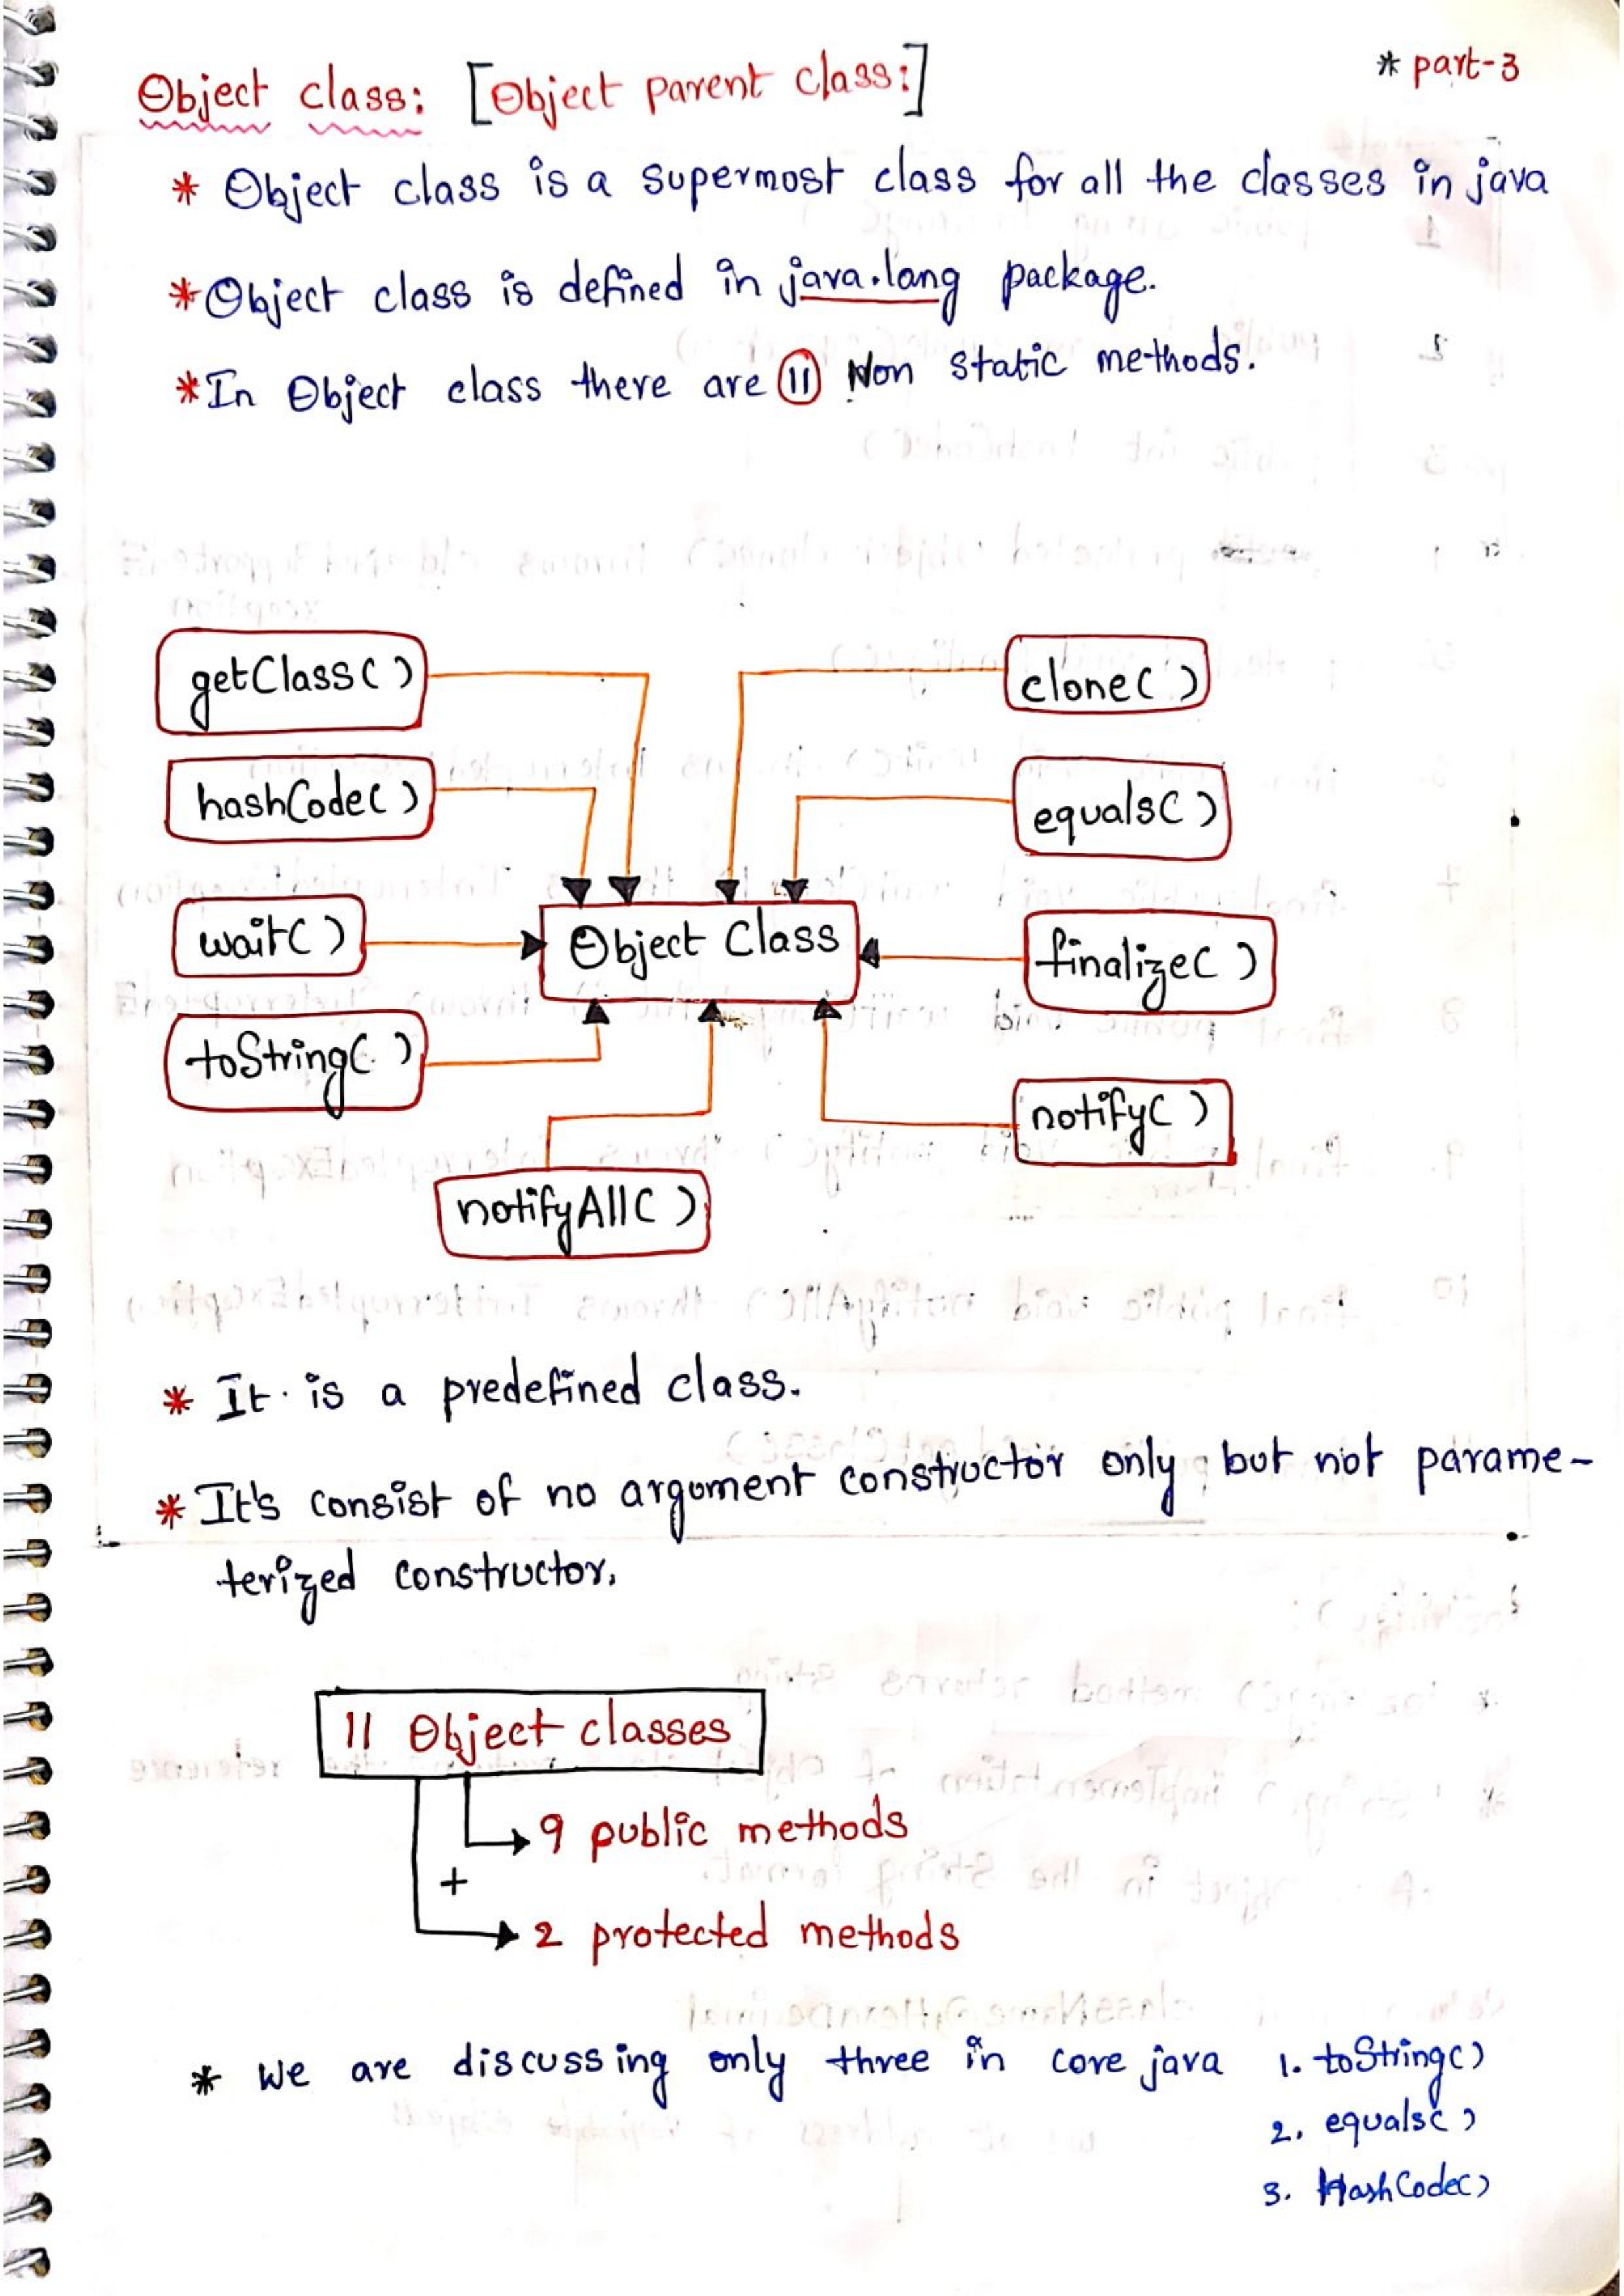 Object class: [Object parent class:]
* part-3
* Object class is a supermost class for all the classes in java
* Object class is defined in java.lang package.
* In Object class there are 11 Non static methods.
getClass( )
clone( )
hashCode( )
equals( )
wait( )
Object Class
finalize( )
toString( )
notify( )
notifyAll( )
* It is a predefined class.
* It's consist of no argument constructor only but not parame-
terized constructor.
11 Object classes
9 public methods
+
2 protected methods
* We are discussing only three in core java 1. toString()
2. equals( )
3. HashCode()